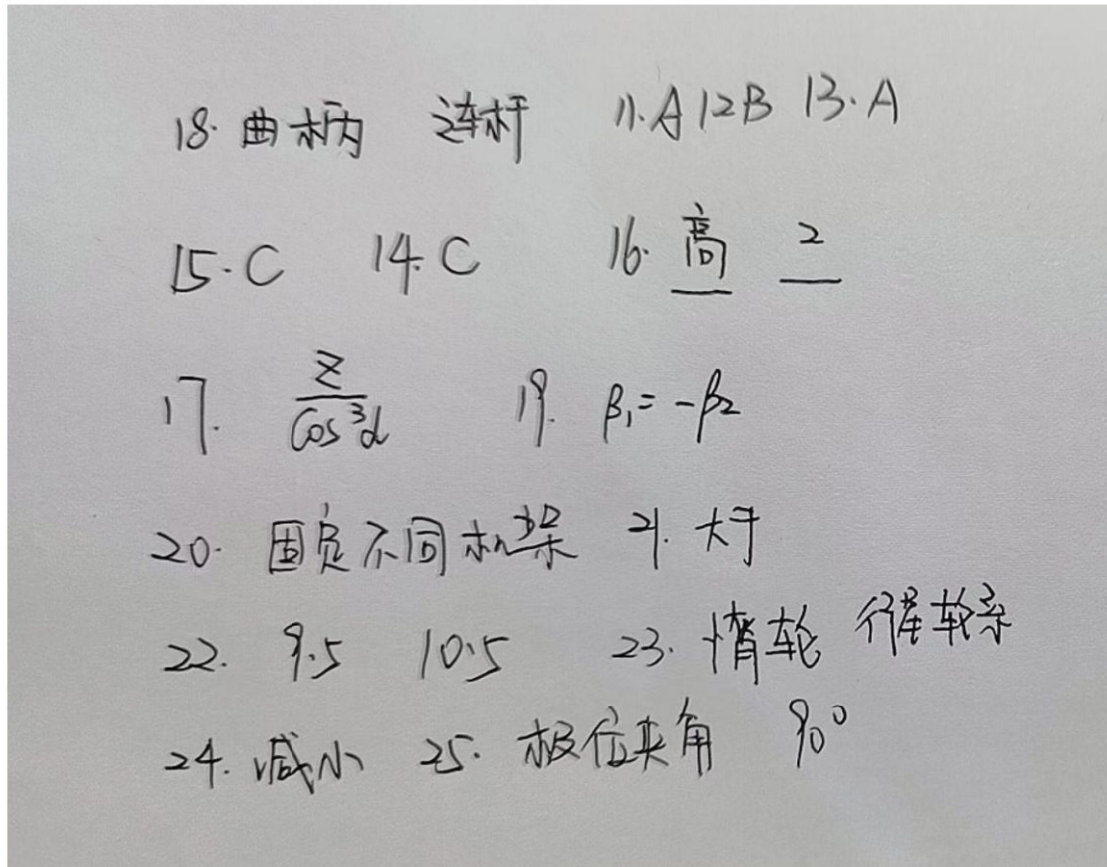 18. 曲柄 连杆 11.A 12B 13.A
15.C 14.C 16. 高 2
17. z/cos³α 19. β₁=-β₂
20. 固定不同机架 21. 大于
22. 9.5 10.5 23. 惰轮 行星轮系
24. 减小 25. 极位夹角 90°